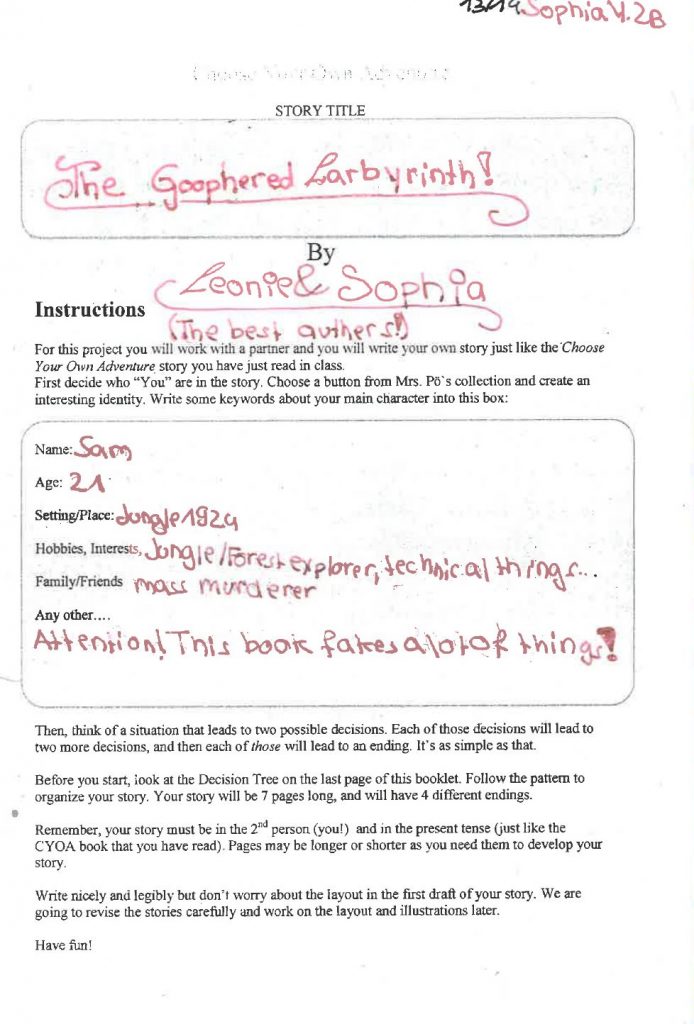 13/14 Sophia V. 2B
Choose Your Own Adventure
STORY TITLE
The Goophered Larbyrinth!
By
Leonie & Sophia
(The best authers!)
Instructions
For this project you will work with a partner and you will write your own story just like the Choose
Your Own Adventure story you have just read in class.
First decide who “You” are in the story. Choose a button from Mrs. Pö`s collection and create an
interesting identity. Write some keywords about your main character into this box:
Name: Sam
Age: 21
Setting/Place: Jungle 1924
Hobbies, Interests, Jungle/Forest explorer, technical things...
Family/Friends mass murderer
Any other....
Attention! This book fakes a lot of things!
Then, think of a situation that leads to two possible decisions. Each of those decisions will lead to
two more decisions, and then each of those will lead to an ending. It's as simple as that.
Before you start, look at the Decision Tree on the last page of this booklet. Follow the pattern to
organize your story. Your story will be 7 pages long, and will have 4 different endings.
Remember, your story must be in the 2nd person (you!) and in the present tense (just like the
CYOA book that you have read). Pages may be longer or shorter as you need them to develop your
story.
Write nicely and legibly but don't worry about the layout in the first draft of your story. We are
going to revise the stories carefully and work on the layout and illustrations later.
Have fun!